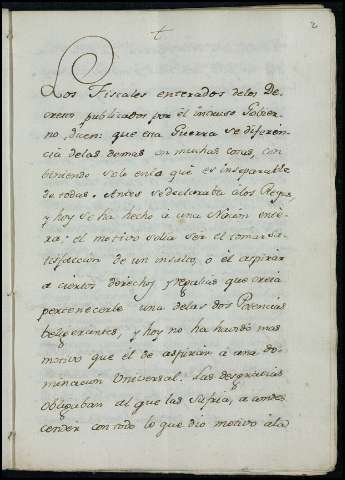 2
Los Fiscales enterados delos De-
cretos publicados por el intruso Govier-
no, dicen: que esta Guerra se diferen-
cia delas demas en muchas cosas, con
biniendo solo enla que es inseparable
de todas. Antes sedeclaraba alos Reyes,
y hoy se ha hecho a una Nacion ente-
ra: el motivo solia ser el tomar sa-
tisfaccion de un insulto, ó el aspirar
a ciertos derechos y regalias que creia
pertenecerle una delas dos Potencias
beligerantes, y hoy no ha havido mas
motivo que el de aspirar a una do-
minacion Universal. Las desgracias
obligaban al que las sufria, a condes
cender con todo lo que dio motivo ála